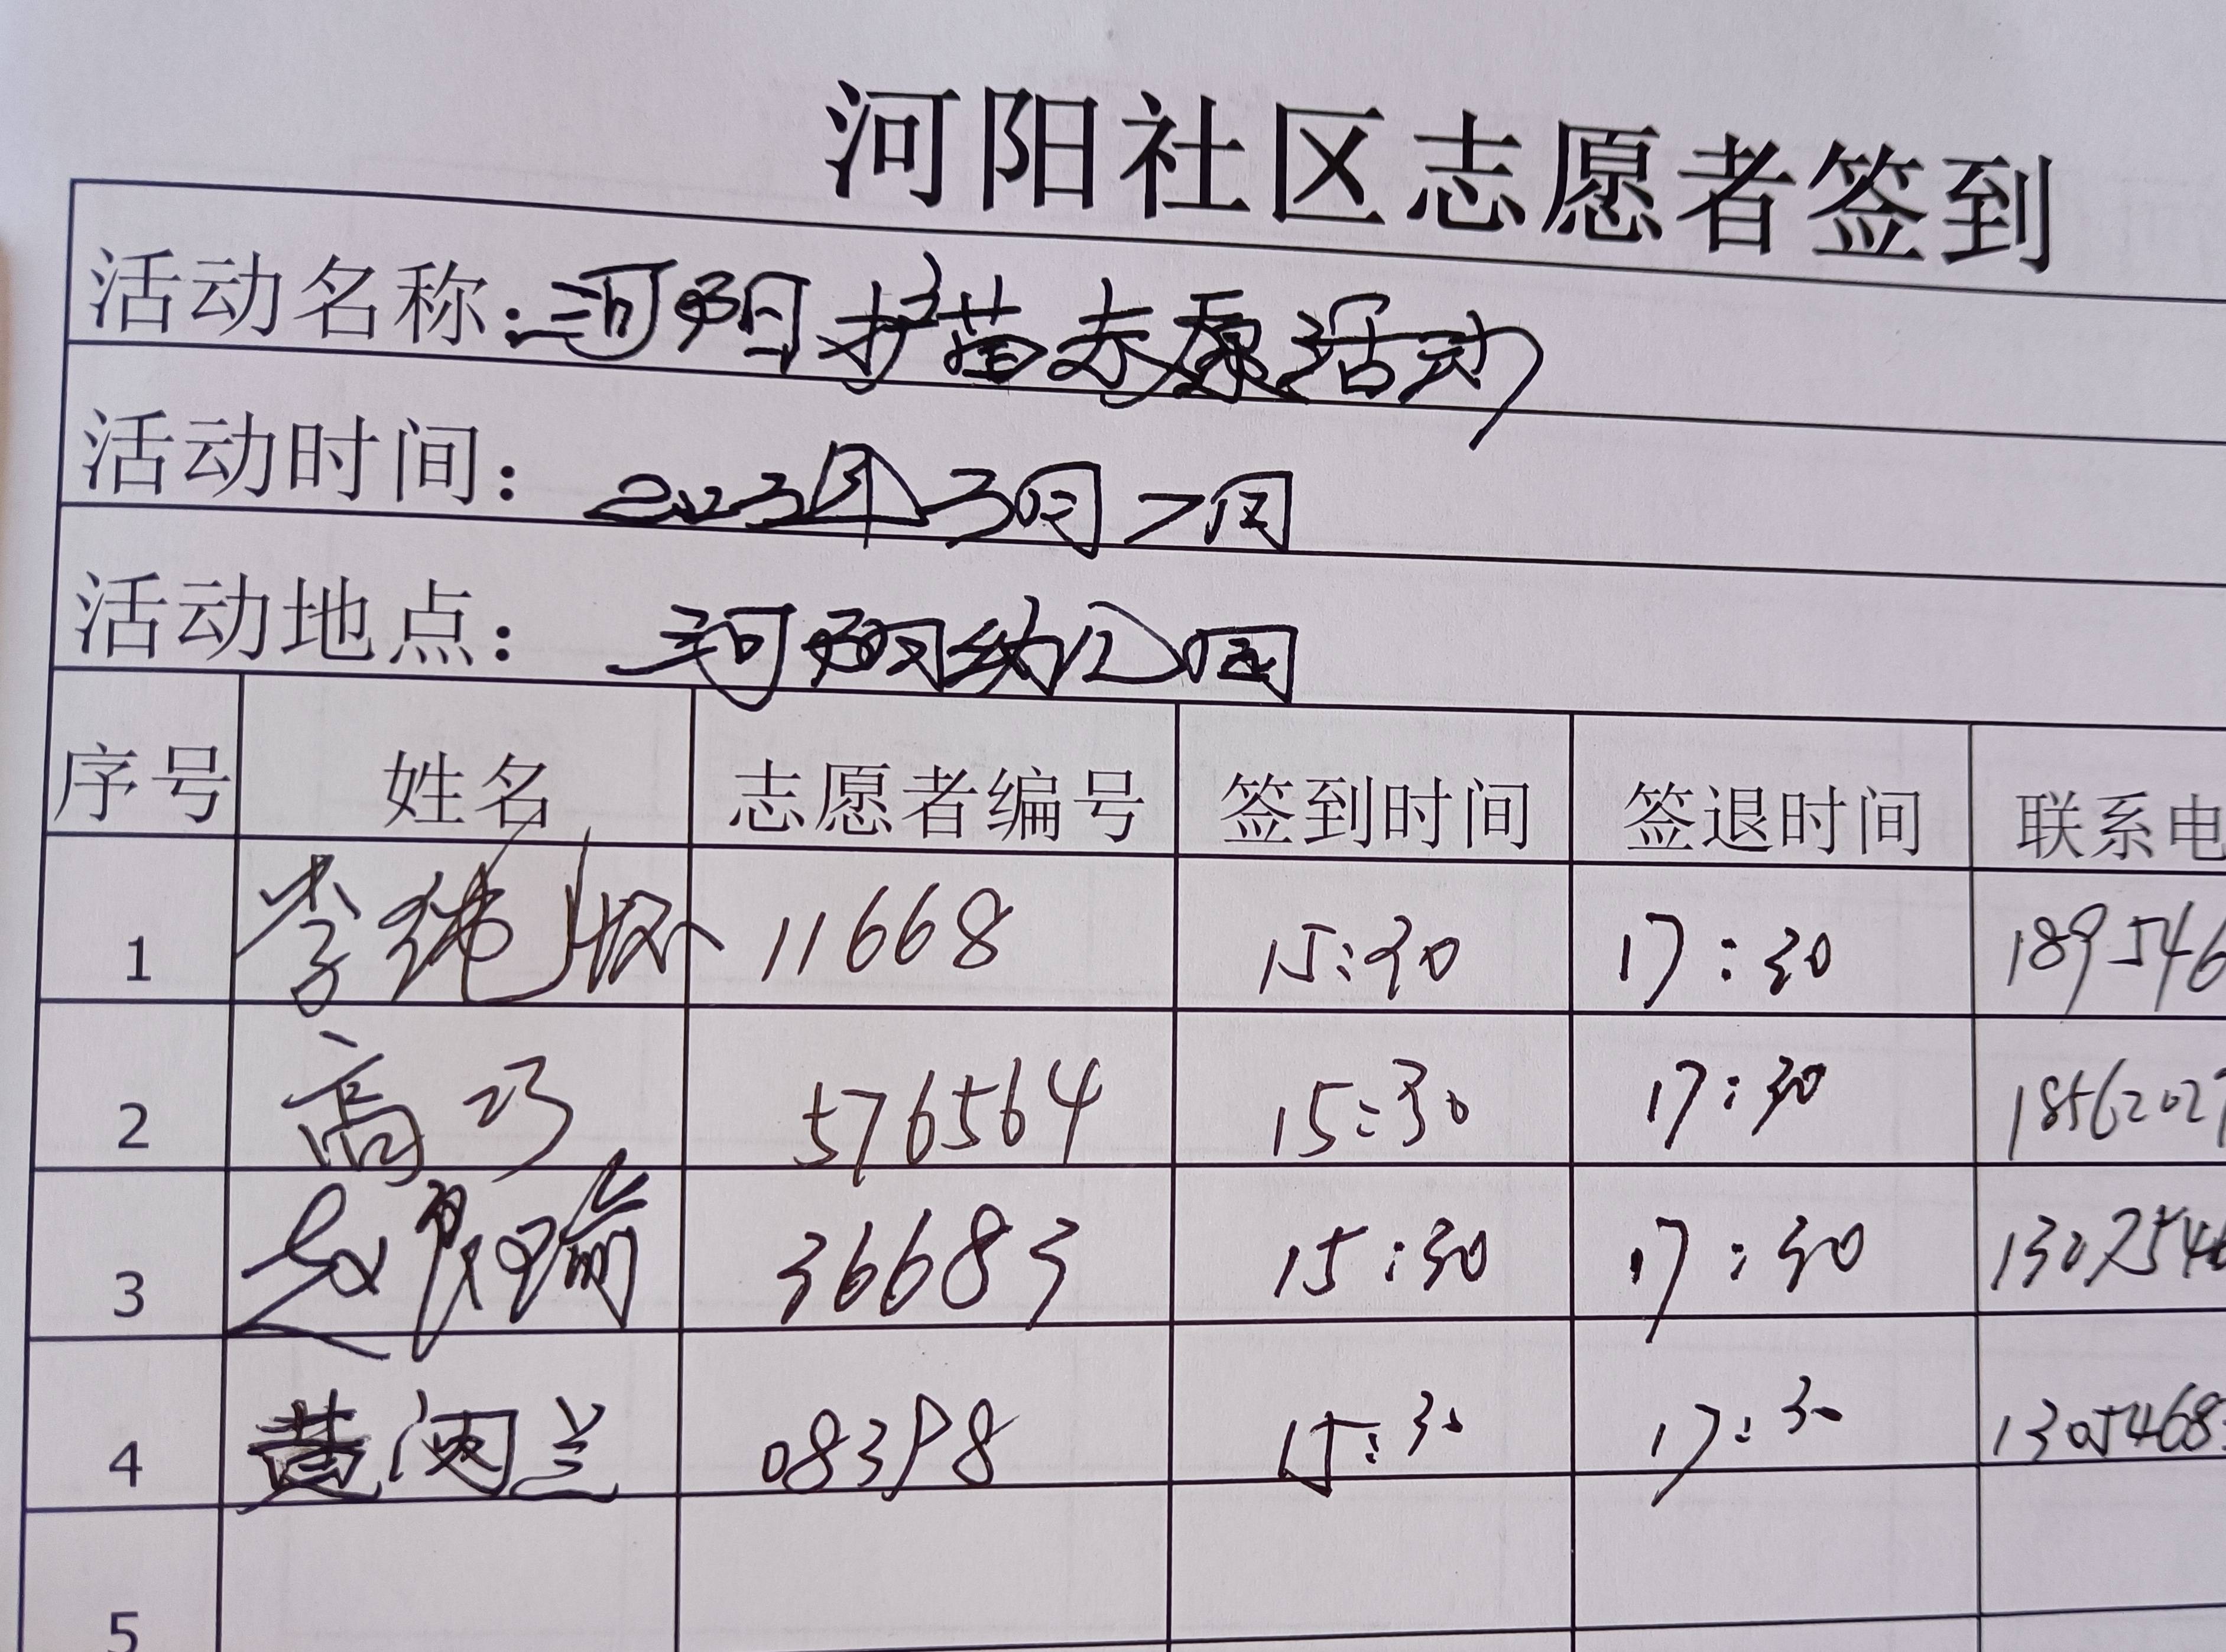 河阳社区志愿者签到
活动名称：河阳护苗志愿活动
活动时间：2023年3月7日
活动地点：河阳幼儿园
序号 姓名 志愿者编号 签到时间 签退时间 联系电
1 李 11668 15:30 17:30 189546
2 高巧 576564 15:30 17:30 1856202
3 赵 36683 15:30 17:30 1307546
4 黄润兰 08398 15:30 17:30 1305468
5